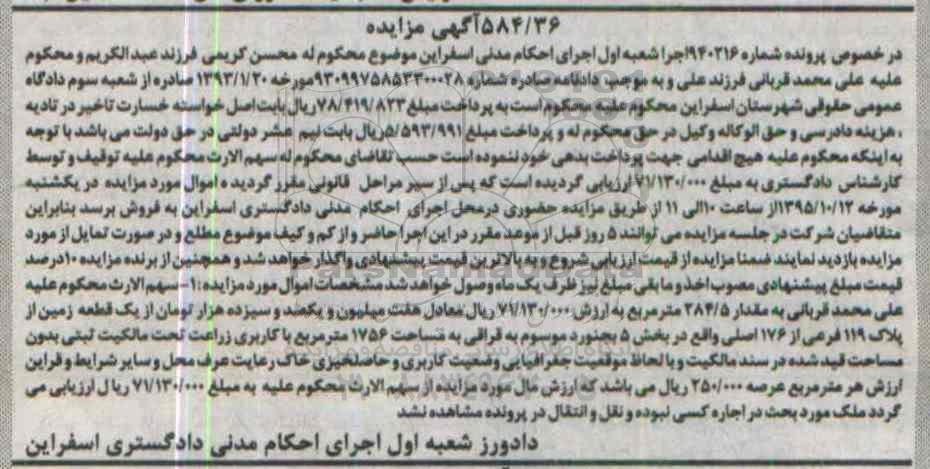 ۵۸۴/۳۶آگهی مزایده
در خصوص پرونده شماره ۹۴۰۲۱۶اجرا شعبه اول اجرای احکام مدنی اسفراین موضوع محکوم له محسن کریمی فرزند عبدالکریم و محکوم
علیه علی محمد قربانی فرزند علی و به موجب دادنامه صادره شماره ۹۳۰۹۹۷۵۸۵۳۳۰۰۰۲۸مورخه ۱۳۹۳/۱/۲۰ صادره از شعبه سوم دادگاه
عمومی حقوقی شهرستان اسفراین محکوم علیه محکوم است به پرداخت مبلغ ۷۸/۴۱۹/۸۲۳ریال بابت اصل خواسته خسارت تاخیر در تادیه
، هزینه دادرسی و حق الوکاله وکیل در حق محکوم له و پرداخت مبلغ ۵/۵۹۳/۹۹۱ریال بابت نیم عشر دولتی در حق دولت می باشد با توجه
به اینکه محکوم علیه هیچ اقدامی جهت پرداخت بدهی خود ننموده است حسب تقاضای محکوم له سهم الارث محکوم علیه توقیف و توسط
کارشناس دادگستری به مبلغ ۷۱/۱۳۰/۰۰۰ ارزیابی گردیده است که پس از سیر مراحل قانونی مقرر گردیده اموال مورد مزایده در یکشنبه
مورخه ۱۳۹۵/۱۰/۱۲از ساعت ۱۰الی ۱۱ از طریق مزایده حضوری درمحل اجرای احکام مدنی دادگستری اسفراین به فروش برسد بنابراین
متقاضیان شرکت در جلسه مزایده می توانند ۵ روز قبل از موعد مقرر در این اجرا حاضر و از کم و کیف موضوع مطلع و در صورت تمایل از مورد
مزایده بازدید نمایند ضمنا مزایده از قیمت ارزیابی شروع و به بالاترین قیمت پیشنهادی واگذار خواهد شد و همچنین از برنده مزایده ۱۰درصد
قیمت مبلغ پیشنهادی مصوب اخذ و مابقی مبلغ نیز ظرف یک ماه وصول خواهد شد مشخصات اموال مورد مزایده:۱-سهم الارث محکوم علیه
علی محمد قربانی به مقدار ۲۸۴/۵ مترمربع به ارزش ۷۱/۱۳۰/۰۰۰ ریال معادل هفت میلیون و یکصد و سیزده هزار تومان از یک قطعه زمین از
پلاک ۱۱۹ فرعی از ۱۷۶ اصلی واقع در بخش ۵ بجنورد موسوم به قراقی به مساحت ۱۷۵۶ مترمربع با کاربری زراعت تحت مالکیت ثبتی بدون
مساحت قید شده در سند مالکیت و با لحاظ موقعیت جغرافیایی وضعیت کاربری و حاصلخیزی خاک رعایت عرف محل و سایر شرایط و قراین
ارزش هر مترمربع عرصه ۲۵۰/۰۰۰ ریال می باشد که ارزش مال مورد مزایده از سهم الارث محکوم علیه به مبلغ ۷۱/۱۳۰/۰۰۰ ریال ارزیابی می
گردد ملک مورد بحث در اجاره کسی نبوده و نقل و انتقال در پرونده مشاهده نشد
دادورز شعبه اول اجرای احکام مدنی دادگستری اسفراین
ParsNamadData